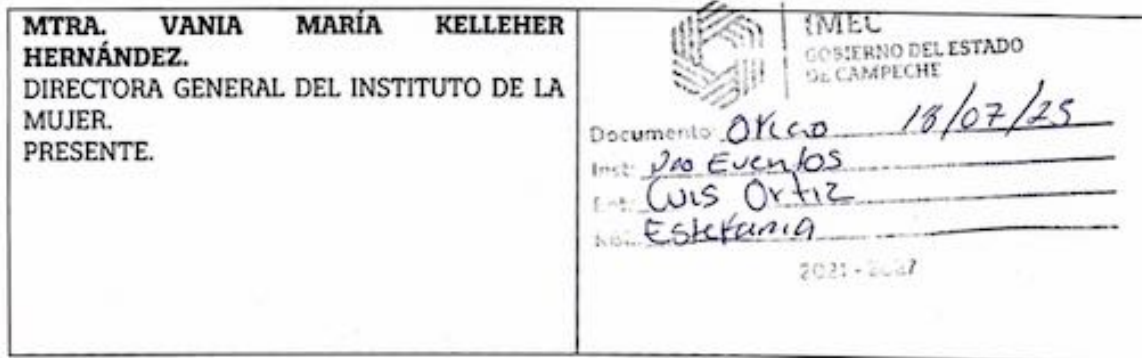 MTRA. VANIA MARÍA KELLEHER
HERNÁNDEZ.
DIRECTORA GENERAL DEL INSTITUTO DE LA
MUJER.
PRESENTE.
IMEC
GOBIERNO DEL ESTADO
DE CAMPECHE
Documento: Oficio 18/07/25
Inst: Eventos
Ent: Luis Ortiz
Estefania
2021 - 2027